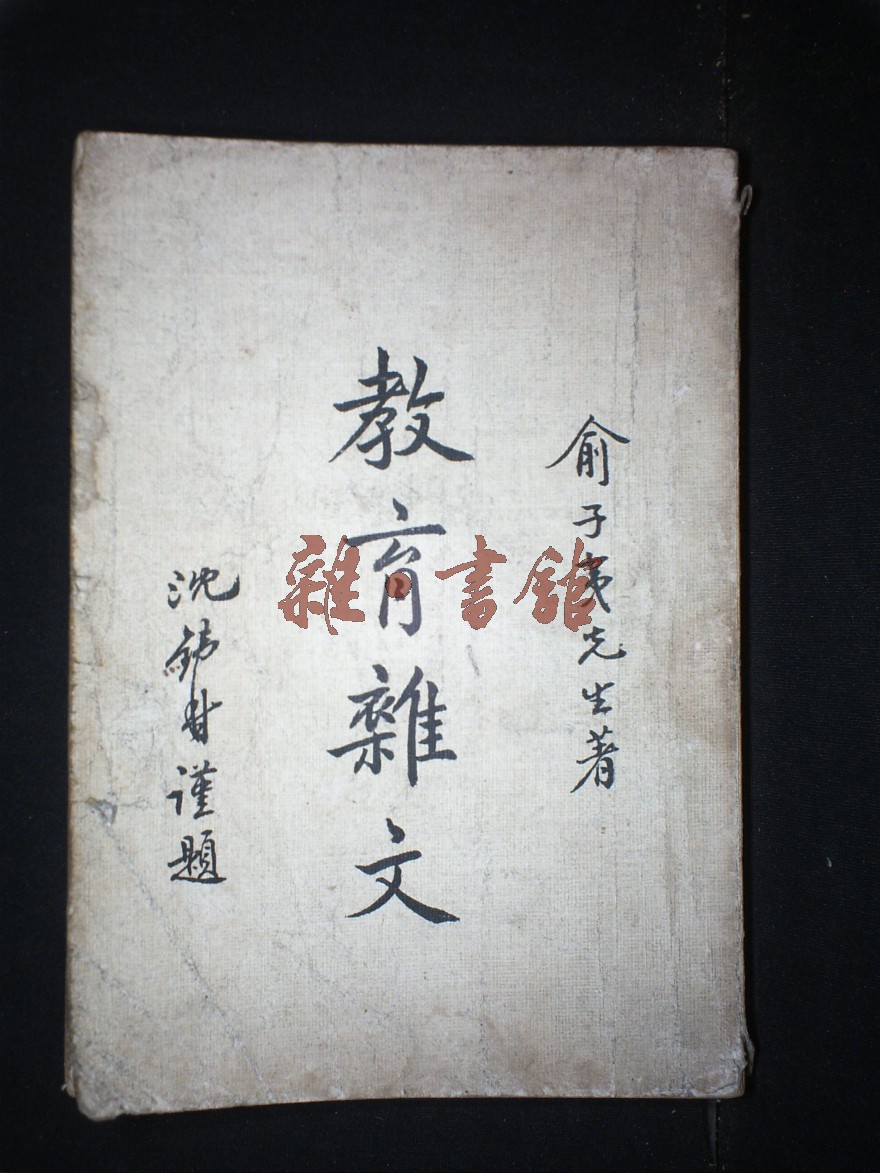 俞子夷先生著
教育雜文
沈謹題
雜·書館